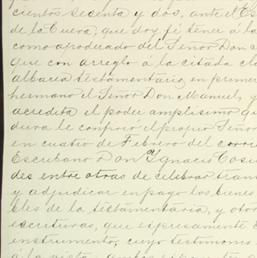 cientos sesenta y dos, ante el Es
de la Cueva, que doy fé tener á la
como apoderado del Señor Don
que con arreglo á la citada
albacea testamentario, en primer
hermano el Señor Don Manuel, y
acredita el poder amplisimo que
dura le confirió el propio Señor
en cuatro de Febrero del corri
Escribano Don Ygnacio Cosi
des entre otras de celebrar tran
y adjudicar en pago los bienes
les de la testamentaría, y otor
escrituras, que espresamente
instrumento, cuyo testimonio